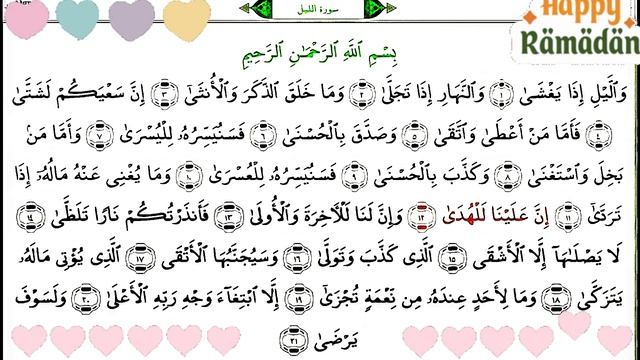 سورة الليل
Happy
Ramadan
بِسْمِ ٱللَّهِ ٱلرَّحْمَٰنِ ٱلرَّحِيمِ
وَٱلَّيْلِ إِذَا يَغْشَىٰ ١ وَٱلنَّهَارِ إِذَا تَجَلَّىٰ ٢ وَمَا خَلَقَ ٱلذَّكَرَ وَٱلْأُنثَىٰٓ ٣ إِنَّ سَعْيَكُمْ لَشَتَّىٰ
٤ فَأَمَّا مَنْ أَعْطَىٰ وَٱتَّقَىٰ ٥ وَصَدَّقَ بِٱلْحُسْنَىٰ ٦ فَسَنُيَسِّرُهُۥ لِلْيُسْرَىٰ ٧ وَأَمَّا مَنۢ
بَخِلَ وَٱسْتَغْنَىٰ ٨ وَكَذَّبَ بِٱلْحُسْنَىٰ ٩ فَسَنُيَسِّرُهُۥ لِلْعُسْرَىٰ ١٠ وَمَا يُغْنِى عَنْهُ مَالُهُۥٓ إِذَا
تَرَدَّىٰٓ ١١ إِنَّ عَلَيْنَا لَلْهُدَىٰ ١٢ وَإِنَّ لَنَا لَلْءَاخِرَةَ وَٱلْأُولَىٰ ١٣ فَأَنذَرْتُكُمْ نَارًا تَلَظَّىٰ ١٤
لَا يَصْلَىٰهَآ إِلَّا ٱلْأَشْقَى ١٥ ٱلَّذِى كَذَّبَ وَتَوَلَّىٰ ١٦ وَسَيُجَنَّبُهَا ٱلْأَتْقَى ١٧ ٱلَّذِى يُؤْتِى مَالَهُۥ
يَتَزَكَّىٰ ١٨ وَمَا لِأَحَدٍ عِندَهُۥ مِن نِّعْمَةٍ تُجْزَىٰٓ ١٩ إِلَّا ٱبْتِغَآءَ وَجْهِ رَبِّهِ ٱلْأَعْلَىٰ ٢٠ وَلَسَوْفَ
يَرْضَىٰ ٢١